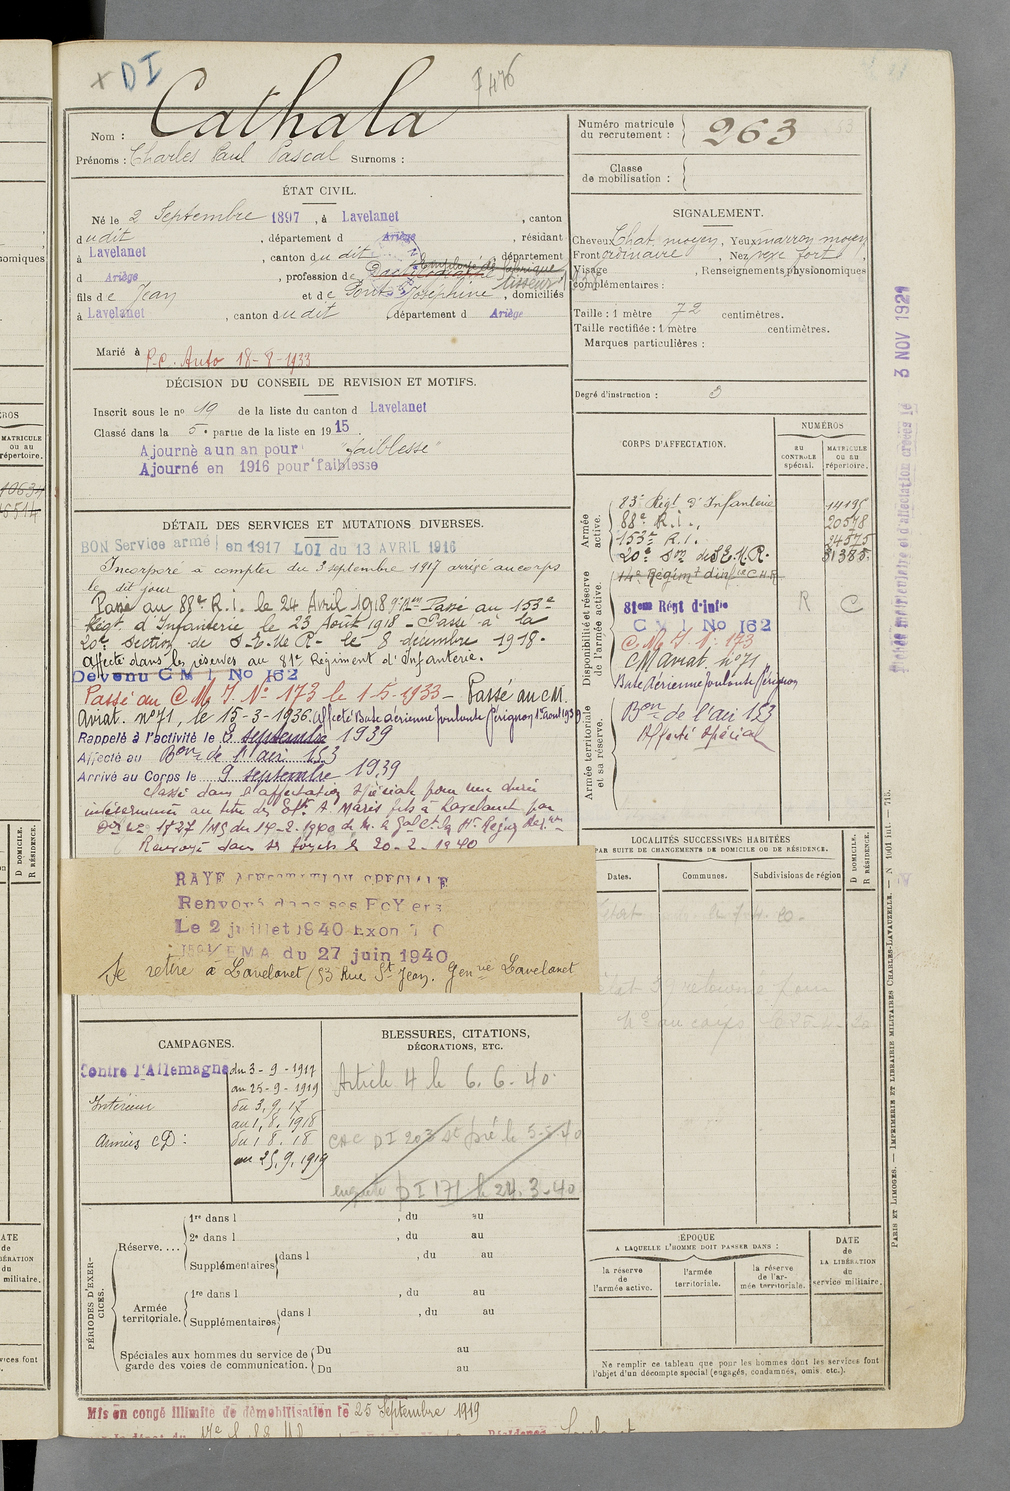 x DI
Nom : Cathala
Prénoms : Charles Paul Pascal Surnoms :
ÉTAT CIVIL.
Né le 2 Septembre 1897, à Lavelanet, canton
dudit, département d Ariège, résidant
à Lavelanet, canton dudit, département
d Ariège, profession de Employé de fabrique
tisseur
fils de Jean et de Joséphine, domiciliés
à Lavelanet, canton dudit, département d Ariège
Marié à
18-8-1933
DÉCISION DU CONSEIL DE REVISION ET MOTIFS.
Inscrit sous le no 19 de la liste du canton d Lavelanet
Classé dans la 5e partie de la liste en 1915.
Ajourné a un an pour "faiblesse"
Ajourné en 1916 pour faiblesse
DÉTAIL DES SERVICES ET MUTATIONS DIVERSES.
BON Service armé en 1917 LOI du 13 AVRIL 1916
Incorporé à compter du 3 septembre 1917 arrivé au corps
le dit jour
Passé au 88e R.I. le 24 Avril 1918 Passé au 153e
Régt. d'Infanterie le 23 Août 1918 - Passé à la
20e section de S.E.M.R. le 8 décembre 1918.
Affecté dans les réserves au 81e Régiment d'Infanterie.
Devenu C M I No 162
Passé au C.M.I. No 173 le 1-5-1933 - Passé au C.M.
Aviat. no 71, le 15-3-1936. Affecté Base aérienne Toulouse Pérignon 1er août 1939
Rappelé à l'activité le 8 septembre 1939
Affecté au Bon de l'air 153
Arrivé au Corps le 9 septembre 1939
Classé dans l'affectation spéciale pour une durée
indéterminée au titre des Ets A. Maris fils à Lavelanet par
Renvoyé dans ses foyers le 20-2-1940
RAYE AFFECTATION SPECIALE
Renvoyé dans ses FoYers
Le 2 juillet 1940
EMA du 27 juin 1940
Se retire à Lavelanet (53 Rue St Jean. Genrie Lavelanet
CAMPAGNES.
Contre l'Allemagne du 3-9-1917
au 25-9-1919
Intérieur du 3.9.17
au 1.8.1918
Armées CD : du 1.8.18
au 25.9.1919
BLESSURES, CITATIONS,
DÉCORATIONS, ETC.
Article 4 le 6.6.40.
enquête DI 171 le 24.3.40
PÉRIODES D'EXERCICES.
Réserve....
1re dans l , du au
2e dans l , du au
Supplémentaires dans l , du au
Armée territoriale.
1re dans l , du au
Supplémentaires dans l , du au
Spéciales aux hommes du service de garde des voies de communication.
Du au
Du au
Mis en congé illimité de démobilisation le 25 Septembre 1919
Numéro matricule
du recrutement : 263
Classe
de mobilisation :
SIGNALEMENT.
Cheveux Chat. moyen, Yeux marron moyen
Front ordinaire, Nez fort,
Visage , Renseignements physionomiques
complémentaires :
Taille : 1 mètre 72 centimètres.
Taille rectifiée : 1 mètre centimètres.
Marques particulières :
Degré d'instruction : 3
CORPS D'AFFECTATION.
NUMÉROS
AU CONTROLE spécial.
MATRICULE OU AU répertoire.
Armée active.
83e Régt d'Infanterie 14195
88e R.I. 20578
153e R.I. 24575
20e Son de S.E.M.R. 31385
Disponibilité et réserve de l'armée active.
81em Régt d'infie R C
C M I No 162
C.M.I. No 173
CM Aviat. no 71
Base Aérienne Toulouse Pérignon
Armée territoriale et sa réserve.
Bon de l'air 153
Affecté spécial
LOCALITÉS SUCCESSIVES HABITÉES
PAR SUITE DE CHANGEMENTS DE DOMICILE OU DE RÉSIDENCE.
Dates. Communes. Subdivisions de région
D DOMICILE.
R RÉSIDENCE.
ÉPOQUE
A LAQUELLE L'HOMME DOIT PASSER DANS :
la réserve de l'armée active.
l'armée territoriale.
la réserve de l'armée territoriale.
DATE
de
LA LIBÉRATION
du
service militaire.
Ne remplir ce tableau que pour les hommes dont les services font
l'objet d'un décompte spécial (engagés, condamnés, omis, etc.).
3 NOV 1921
PARIS ET LIMOGES. — IMPRIMERIE ET LIBRAIRIE MILITAIRES CHARLES-LAVAUZELLE.